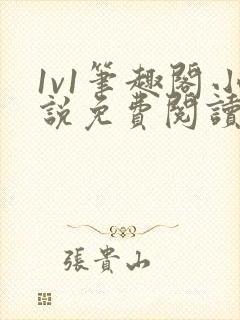 1v1筆趣閣.小
說免費閱讀
張貴山